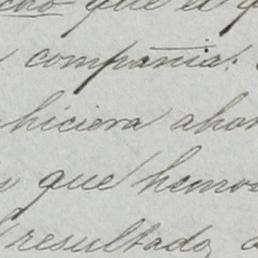 cho que el q
compañia.
hiciera ahor
que hemos
resultado